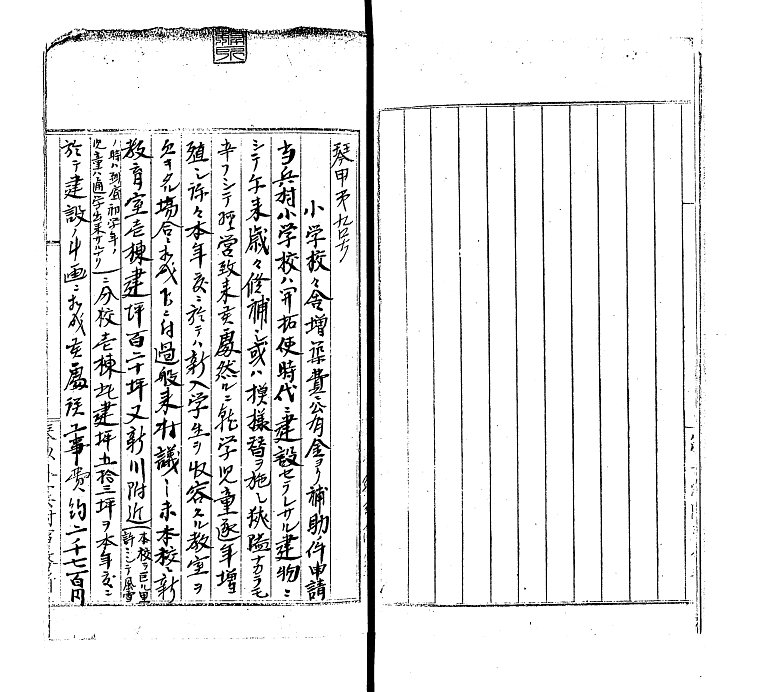 琴甲第九百号
小学校々舎増築費公有金ヨリ補助ノ件申請
当兵村小学校ハ開拓使時代ニ建設セラレサル建物ニ
シテ年来歳々修補シ或ハ模様替ヲ施し狭隘ナカラモ
辛フシテ経営致来候處然ルニ就学児童逐年増
殖シ許々本年度ニ於テハ新入学生ヲ収容スル教室ヲ
欠キタル場合ニ相成候ニ付過般来村議之末本校ニ新
教育室壱棟建坪百二十坪又新川附近
本校ヲ巨ル里
許ニシテ風雪
ノ時ハ到底初学年ノ
児童ハ通学出来サルナリ
ニ分校壱棟此建坪五拾三坪ヲ本年度ニ
於テ建設ノ計画ニ相成候處該工事費約二千七百円